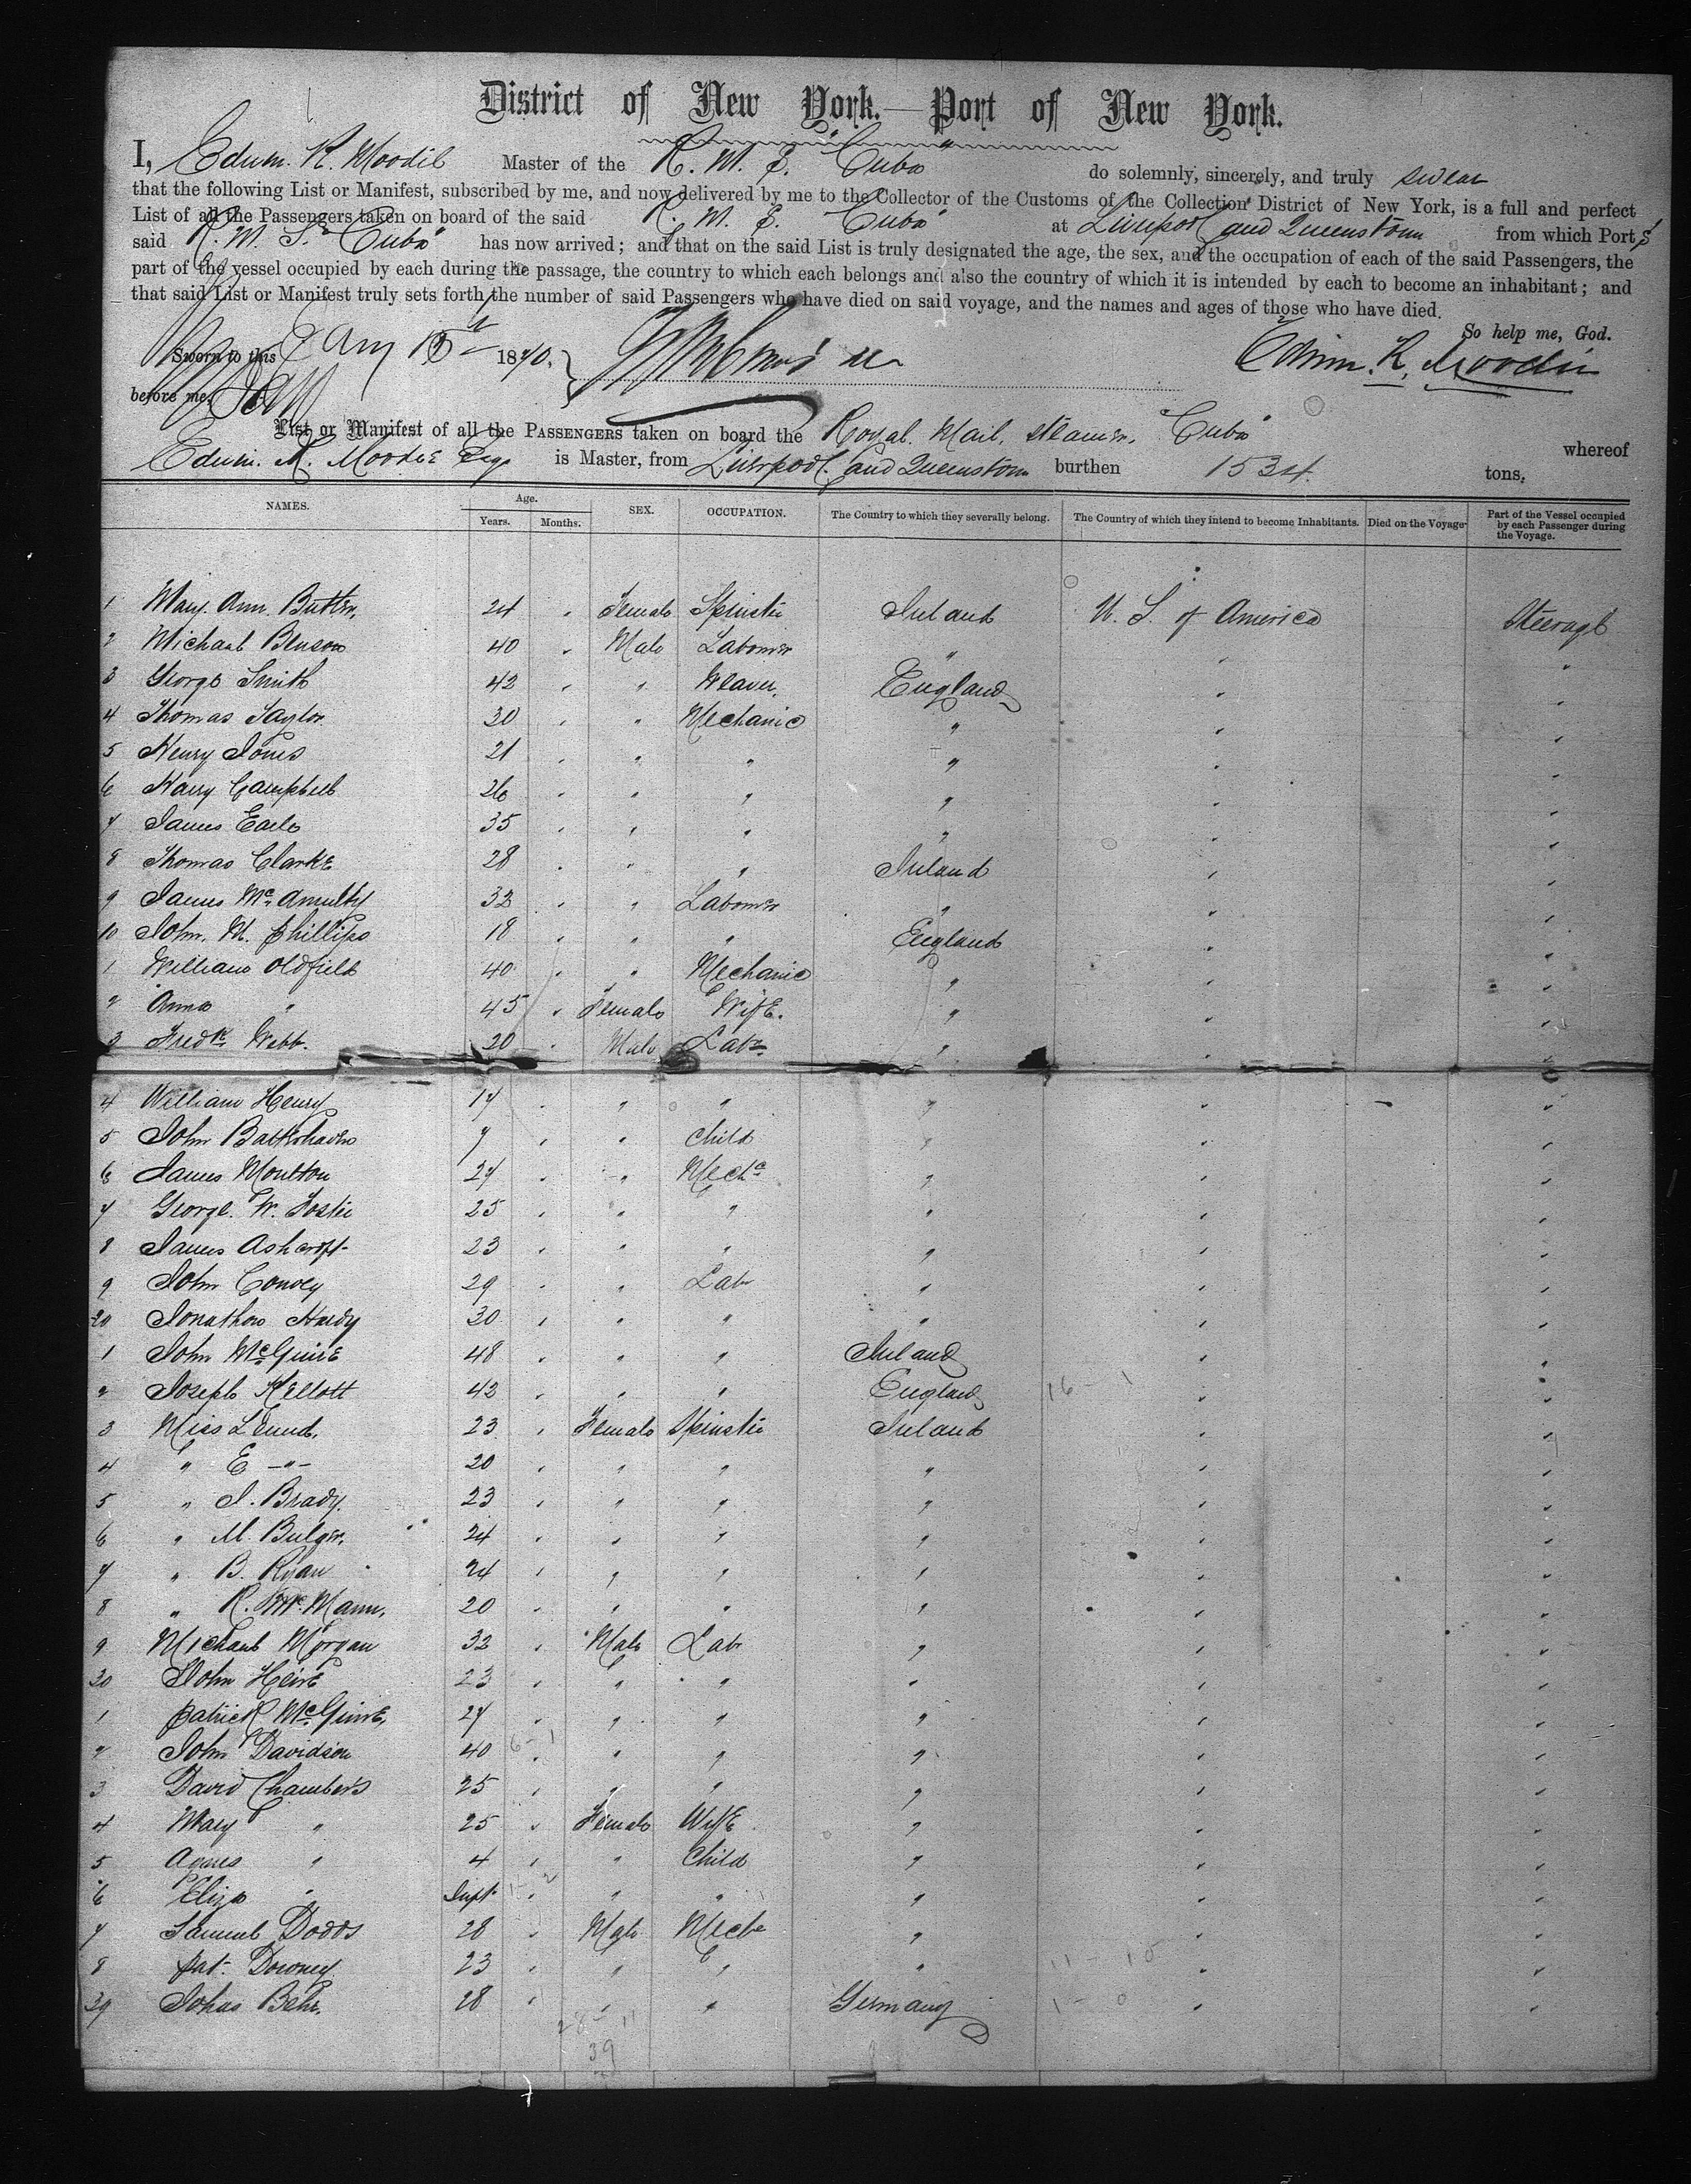 District of New York.—Port of New York.
I, Edwin. R. Moodie Master of the R. M. S. "Cuba" do solemnly, sincerely, and truly swear
that the following List or Manifest, subscribed by me, and now delivered by me to the Collector of the Customs of the Collection District of New York, is a full and perfect
List of all the Passengers taken on board of the said R. M. S. "Cuba" at Liverpool and Queenstown from which Ports
said R. M. S. "Cuba" has now arrived; and that on the said List is truly designated the age, the sex, and the occupation of each of the said Passengers, the
part of the vessel occupied by each during the passage, the country to which each belongs and also the country of which it is intended by each to become an inhabitant; and
that said List or Manifest truly sets forth the number of said Passengers who have died on said voyage, and the names and ages of those who have died.
So help me, God.
Sworn to this 1870. Edwin. R. Moodie
before me,
List or Manifest of all the PASSENGERS taken on board the Royal. Mail. Steamer. "Cuba" whereof
Edwin. R. Moodie Esqr is Master, from Liverpool. and Queenstown burthen 1534. tons.
NAMES. Age. Years. Months. SEX. OCCUPATION. The Country to which they severally belong. The Country of which they intend to become Inhabitants. Died on the Voyage. Part of the Vessel occupied by each Passenger during the Voyage.
1 Mary. Ann. Butler. 24 " Female Spinster Ireland U. S. of America Steerage
2 Michael Benson 40 " Male Labourer " " "
3 George Smith 42 " " Weaver. England " "
4 Thomas Taylor 30 " " Mechanic " " "
5 Henry Jones 21 " " " " " "
6 Harry Campbell 26 " " " " " "
7 James Earle 35 " " " " " "
8 Thomas Clarke 28 " " " Ireland " "
9 James McAnulty 32 " " Labourer " " "
10 John. M. Phillips 18 " " " England " "
1 William Oldfield 40 " " Mechanic " " "
2 Anna " 45 " Female Wife. " " "
3 Fredk Webb. 20 " Male Labr " " "
4 William Henry 17 " " " " " "
5 John 7 " " Child " " "
6 James Moulton 27 " " Mechc " " "
7 George. W. Foster 25 " " " " " "
8 James Ashcroft 23 " " " " " "
9 John Convey 29 " " Lab " " "
20 Jonathan Hardy 30 " " " " " "
1 John McGuire 48 " " " Ireland " "
2 Joseph Kellott 42 " " " England " "
3 Miss L 23 " Female Spinster Ireland " "
4 " E —"— 20 " " " " " "
5 " J. Brady. 23 " " " " " "
6 " M. Bulger. 24 " " " " " "
7 " B. Ryan 24 " " " " " "
8 " R. McMann. 20 " " " " " "
9 Michael Morgan 32 " Male Lab " " "
30 John 23 " " " " " "
1 Patrick McGuire. 27 " " " " " "
2 John Davidson 40 " " " " " "
3 David Chambers 25 " " " " " "
4 Mary " 25 " Female Wife " " "
5 Agnes " 4 " " Child " " "
6 Eliza " Inft " " " " " "
7 Samuel Dodds 28 " Male Mech " " "
8 Pat. Downey 23 " " " " " "
39 Johas Behr. 28 " " " Germany " "
28 - 11
39